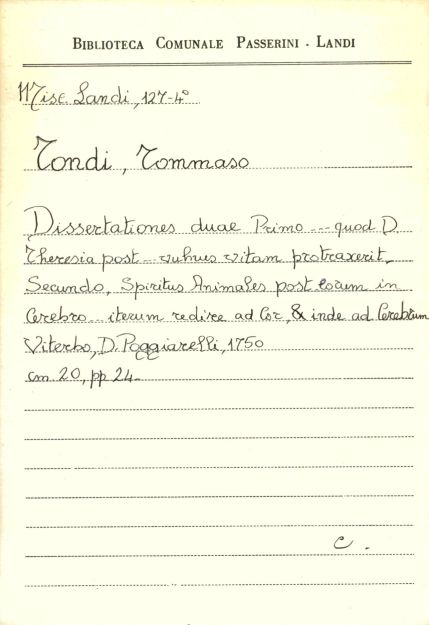 BIBLIOTECA COMUNALE PASSERINI . LANDI
Misc Landi, 127-4°
Tondi, Tommaso
Dissertationes duae Primo --- quod D.
Theresia post --- vuhus vitam protraxerit.
Secundo, Spiritus Animales post eorum in
Cerebro --- iterum redire ad Cor, & inde ad Cerebrum
Viterbo, D. Poggiarelli, 1750
cm 20, pp 24-
C .